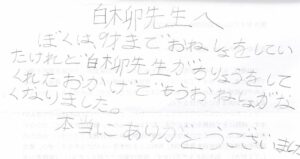 白柳先生へ
ぼくは9才までおねしょをしてい
たけれど白柳先生がちりょうをして
くれたおかげでもうおねしょがな
くなりました。
本当にありがとうございました